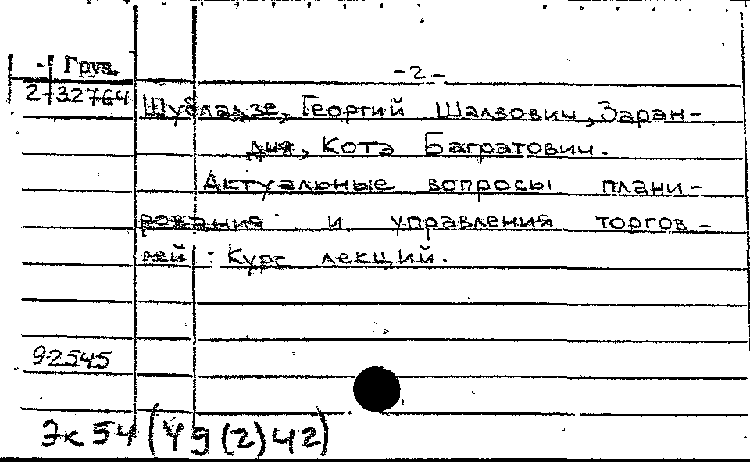 Груз. -2-
2-32764 Шубладзе, Георгий Шалвович, Заран-
дия, Котэ Багратович.
Актуальные вопросы плани-
рования и управления торгов-
лей: Курс лекций.
92545
Эк54(Уд(2)42)